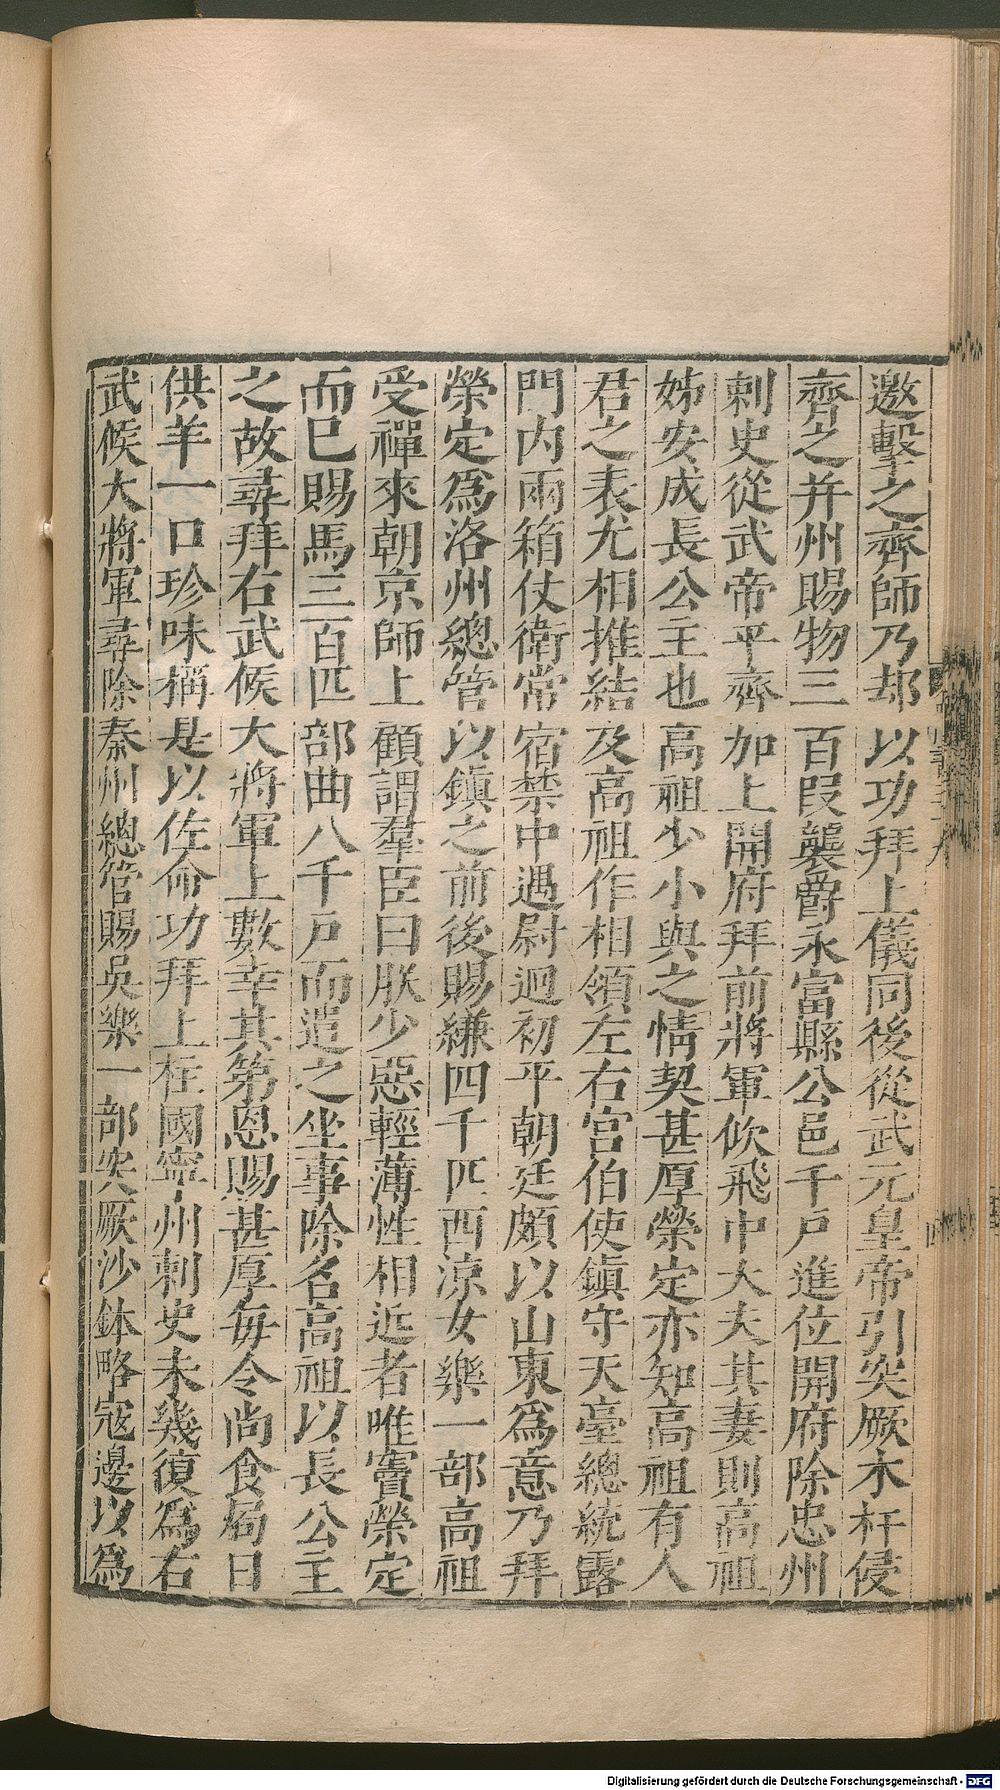 邀擊之齊師乃却以功拜上儀同後從武元皇帝引突厥木杆侵
齊之并州賜物三百段襲爵永富縣公邑千戸進位開府除忠州
刺史從武帝平齊加上開府拜前將軍佽飛中大夫其妻則高祖
姊安成長公主也高祖少小與之情契甚厚榮定亦知高祖有人
君之表尤相推結及高祖作相領左右宫伯使鎭守天臺總統露
門内兩箱仗衛常宿禁中遇尉迥初平朝廷頗以山東爲意乃拜
榮定爲洛州總管以鎭之前後賜縑四千匹西凉女樂一部高祖
受禪來朝京師上顧謂羣臣曰朕少惡輕薄性相近者唯竇榮定
而已賜馬三百匹部曲八千戸而遣之坐事除名高祖以長公主
之故尋拜右武候大將軍上數幸其第恩賜甚厚每令尚食局日
供羊一口珍味稱是以佐命功拜上柱國寧州刺史未幾復爲右
武候大將軍尋除秦州總管賜吳樂一部突厥沙鉢略寇邊以爲
Digitalisierung gefördert durch die Deutsche Forschungsgemeinschaft - DFG